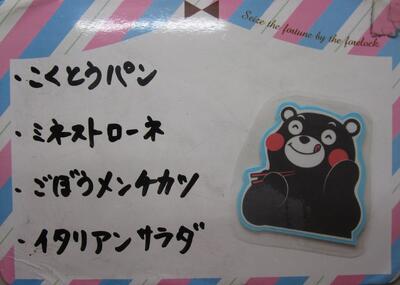 Seize the fortune by the forelock
・こくとうパン
・ミネストローネ
・ごぼうメンチカツ
・イタリアンサラダ